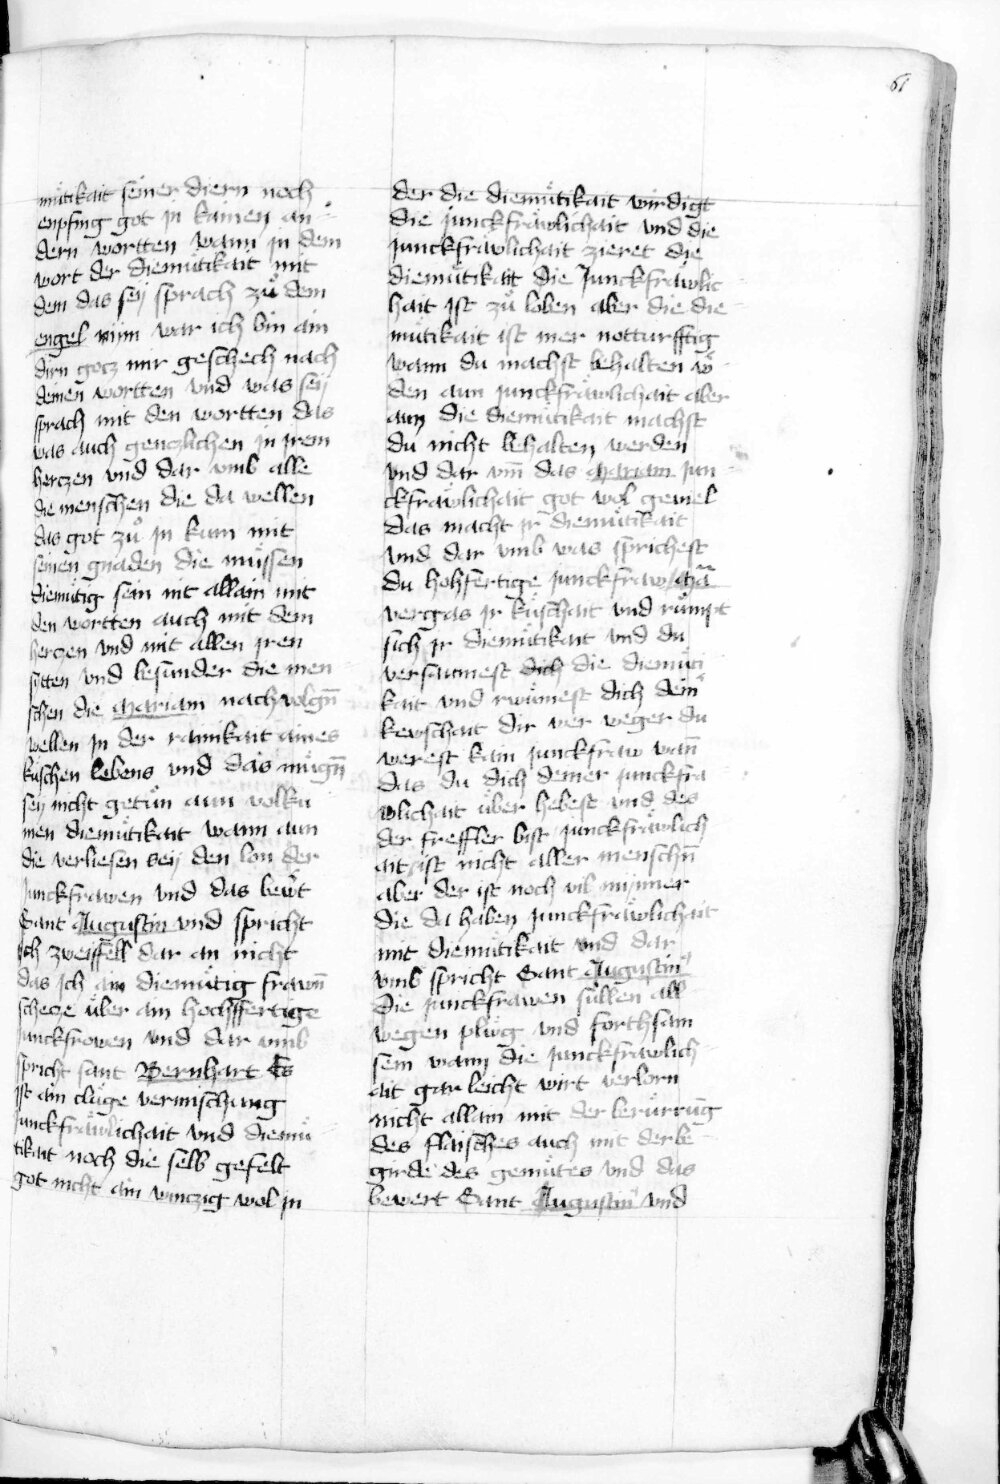 61
mütikait seiner diern noch
enpfing got in kainen an
dern wortten wann in dem
wort der diemütikait mit
dem das seÿ sprach zů dem
engel nim war ich bin ain
dirn gotz mir geschech nach
deinen wortten vnd was seÿ
sprach mit den wortten das
was auch genczlichen in irem
herczen vnd dar vmb alle
die menschen die da wellen
das got zů in kum mit
seinen gnaden die müssen
diemütig sein nit allain mit
den wortten auch mit dem
herczen vnd mit allen iren
sitten vnd besunder die men
schen die Mariam nachvolgn̄
wellen in der rainikait aines
küschen lebens vnd das mügn̄
seÿ nicht getůn aun volku
men diemütikait wann aun
die verliesen seÿ den lon der
junckfrawen vnd das bewt
Sant Augustin vnd spricht
ich zweiffell dar an nicht
das ich ain diemütig frawn̄
schecze über ain hochffertige
junckfrowen vnd dar vmb
spricht sant Bernhart Es
ist ain cluge vermischung
junckfräwlichait vnd diemü
tikait noch die selb gefelt
got nicht ain winczig wol in
der die diemütikait wirdigt
die junckfräwlichait vnd die
junckfrawlichait zieret die
diemütikait die Junckfrawlic
hait ist zů loben aber die die
mütikait ist mer notturfftig
wann du machst behalten w
den aun junckfräwlichait aber
aun die diemütikait machst
du nicht behalten werden
vnd dar vm̄ das Mariam jun
ckfräwlichait got wol geuiel
das macht ir diemütikait
vnd dar vmb was sprichest
du hohfertige junckfraw Mā
vergas ir küschait vnd rümpt
sich ir diemütikait vnd du
versaumest dich die diemüti
kait vnd rwümest dich dein
kewschait dir wer weger du
werest kain junckfraw wan̄
das du dich deiner junckfra
wlichait über hebest vnd des
der freffler bist junckfräwlich
ait ist nicht aller menschn̄
aber der ist noch vil mynner
die da haben junckfräwlichait
mit diemütikait vnd dar
vmb spricht Sant Augustin
die junckfrawen süllen all
wegen plüg vnd forchsam
sein wann die junckfrawlich
ait gar leicht wirt verlorn
nicht allain mit der berürrūg
des flaisches auch mit der be
girde des gemütes vnd das
bewert Sant Augustin vnd